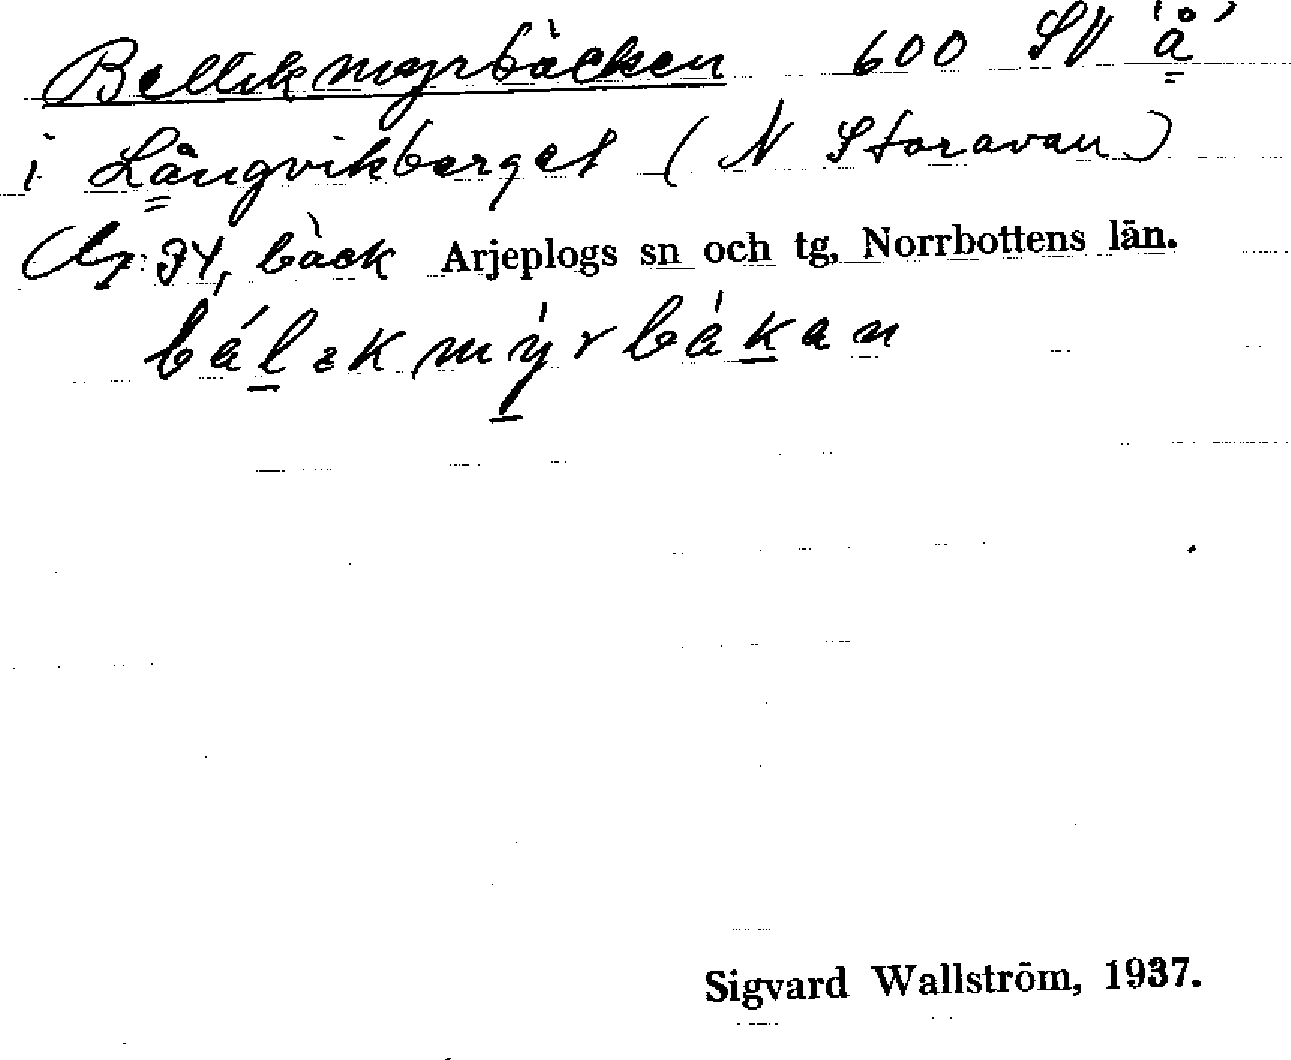 Bellikmyrbäcken 600 SV 'å'
i Långvikberget (N Storavan)
bäck Arjeplogs sn och tg, Norrbottens län.
Sigvard Wallström, 1937.